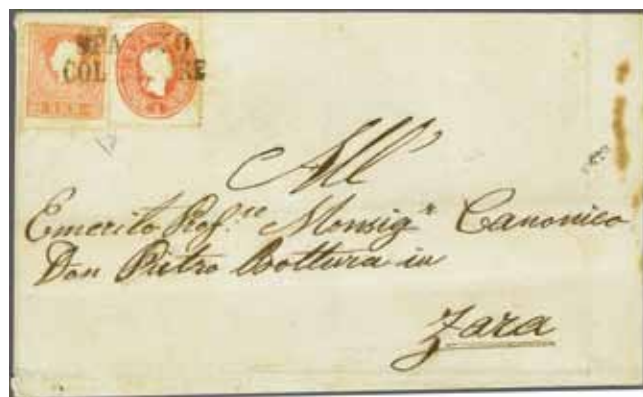 All'
Emerito Prof.re Monsigr Canonico
Don Pietro Bottura in
Zara